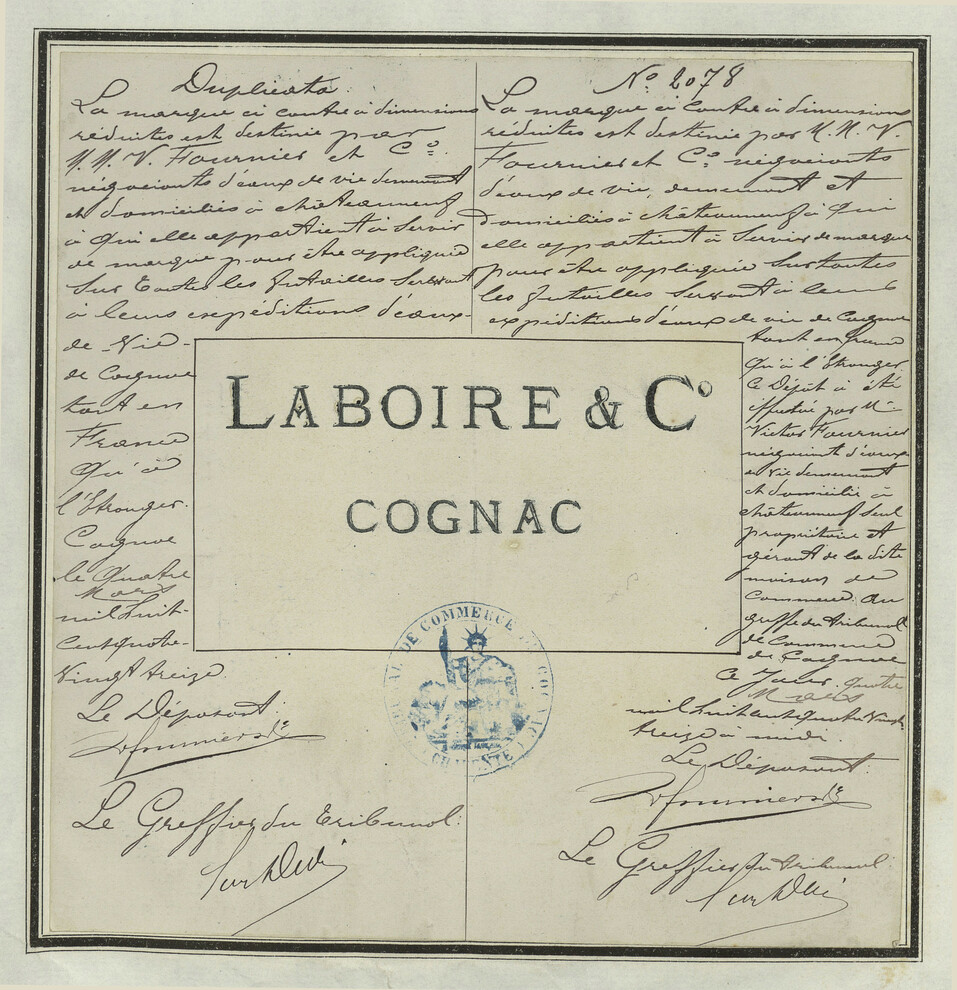 Duplicata.
La marque ci contre à dimensions
réduites est destinée par
M.M. V. Fournier et Co.
négociants d'eaux de vie demeurant
et domiciliés à châteauneuf
à qui elle appartient à servir
de marque pour être appliquée
sur toutes les futailles servant
à leurs expéditions d'eaux-
de-Vie-
de Cognac
tant en
France
qu'à
l'Etranger.
Cognac
le Quatre
Mars
mil huit-
cent quatre-
Vingt treize.
Le Déposant:
V. Fournier & Cie
Le Greffier du Tribunal:
No 2078
La marque ci contre à dimensions
réduites est destinée par M.M. V.
Fournier et Co. négociants
d'eaux de vie, demeurant et
domiciliés à châteauneuf à qui
elle appartient à servir de marque
pour être appliquée sur toutes
les futailles servant à leurs
expéditions d'eaux de vie de Cognac
tant en france
qu'à l'Etranger.
Ce Dépôt a été
effectué par Mr
Victor Fournier
négociant d'eaux
de vie demeurant
et domicilié à
châteauneuf seul
propriétaire et
gérant de la dite
maison de
Commerce, au
greffe du tribunal
de Commerce
de Cognac
Ce Jour, quatre
Mars
mil huit cent quatre vingt
treize à midi.
Le Déposant:
V. Fournier & Cie
Le Greffier du tribunal:
LABOIRE & Co
COGNAC
TRIBUNAL DE COMMERCE DE COGNAC
CHARENTE